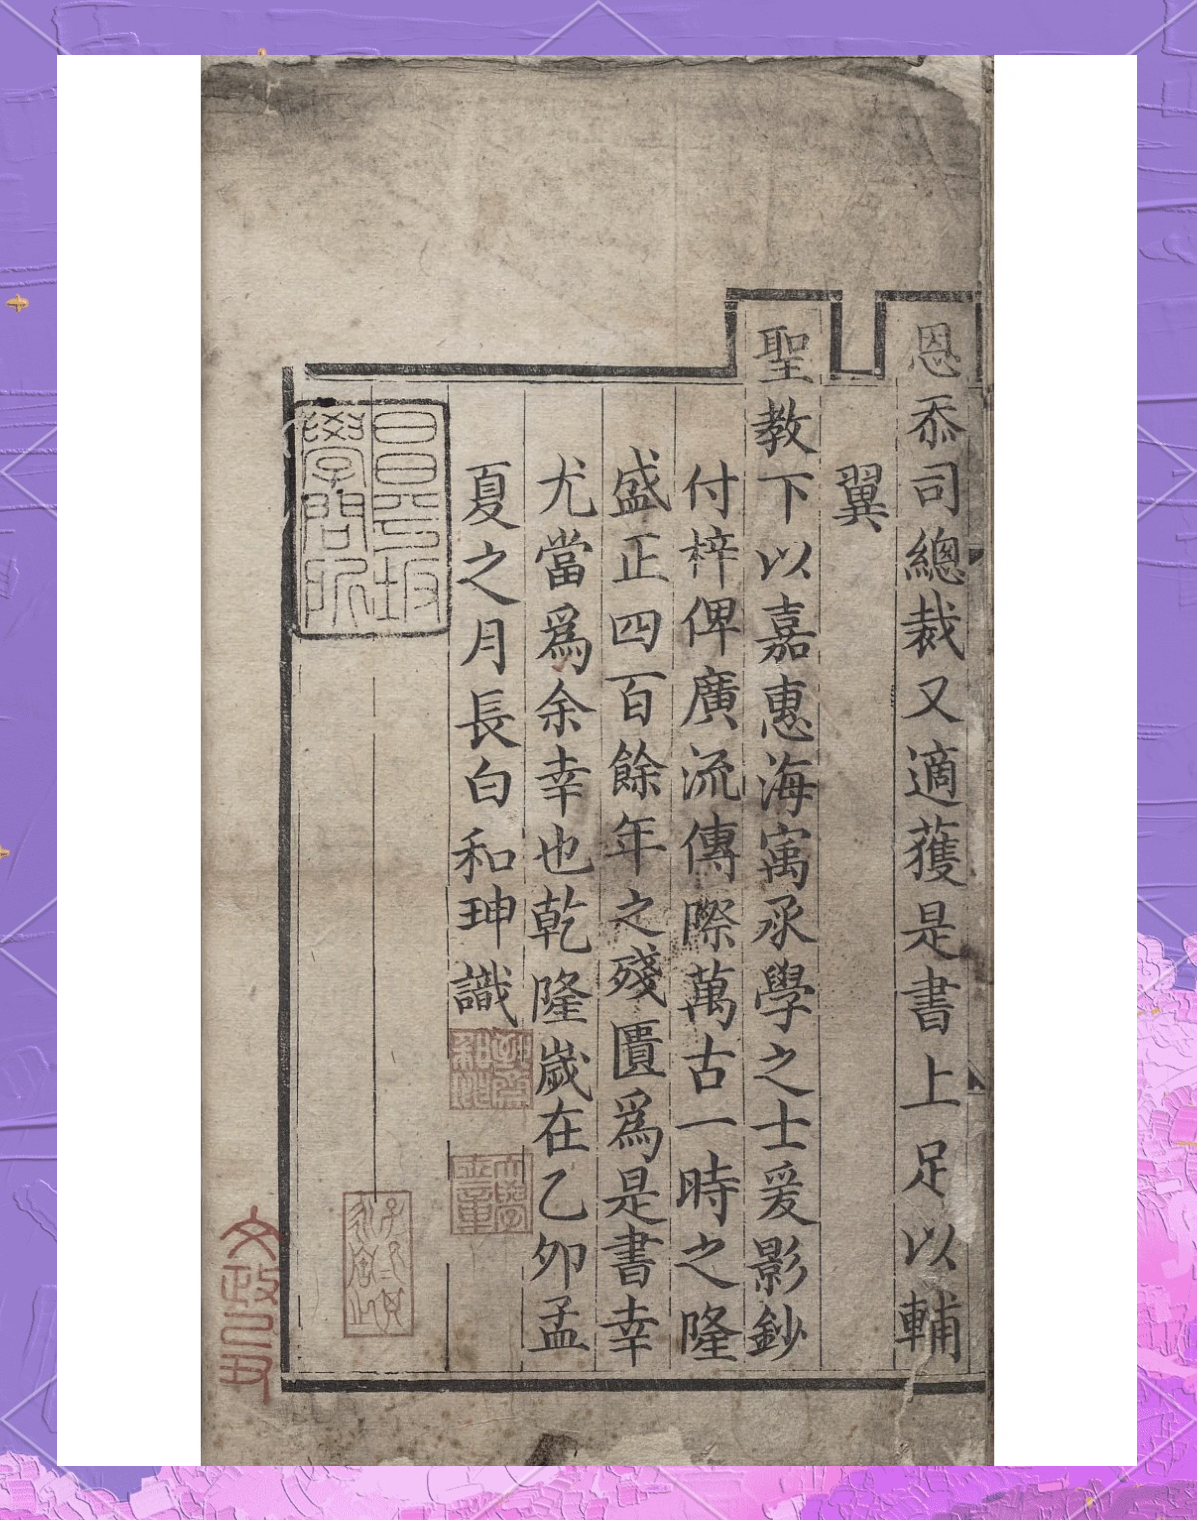 恩忝司總裁又適獲是書上足以輔
翼
聖教下以嘉惠海㝢承學之士爰影鈔
付梓俾廣流傳際萬古一時之隆
盛正四百餘年之殘匱爲是書幸
尤當爲余幸也乾隆歲在乙卯孟
夏之月長白和珅識
大學士章
昌平坂
學問所
文政己丑